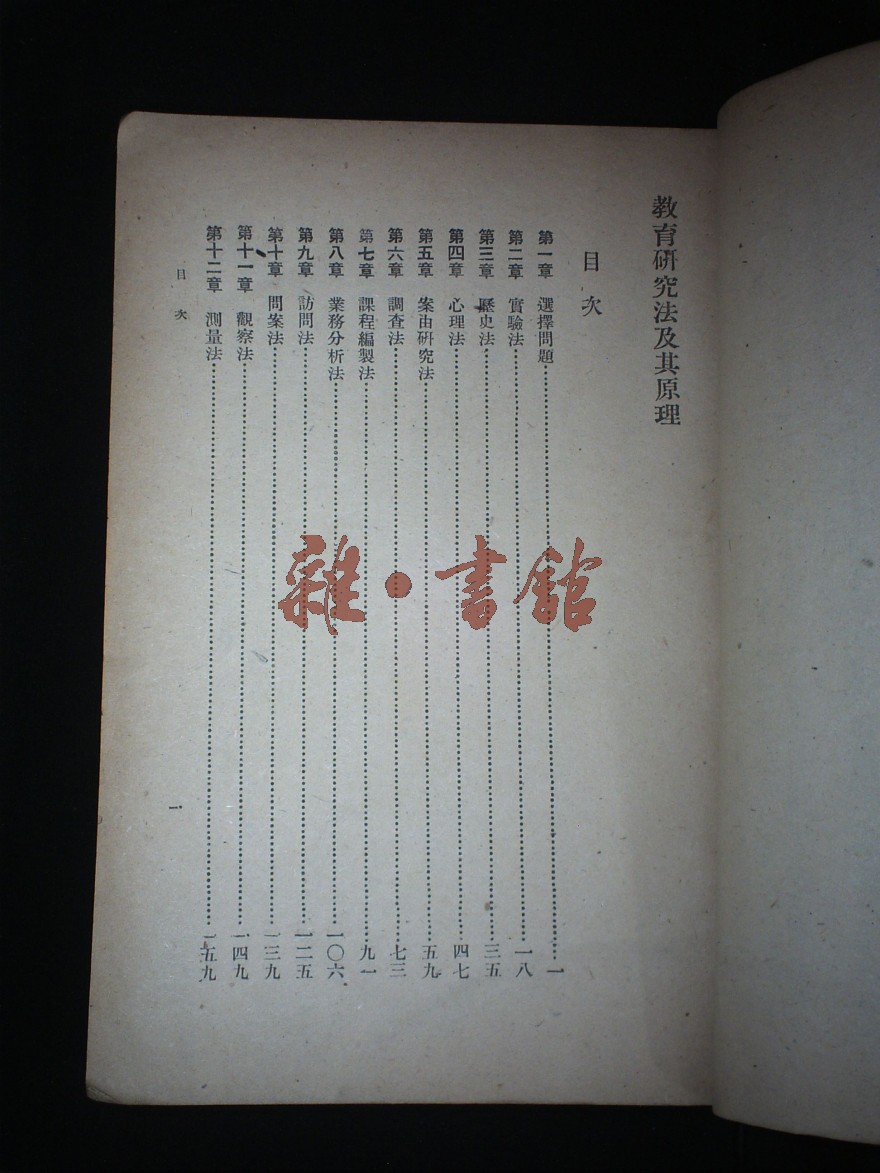 教育研究法及其原理
目次
第一章 選擇問題……一
第二章 實驗法……一八
第三章 歷史法……三五
第四章 心理法……四七
第五章 案由研究法……五九
第六章 調查法……七三
第七章 課程編製法……九一
第八章 業務分析法……一〇六
第九章 訪問法……一二五
第十章 問案法……一三九
第十一章 觀察法……一四九
第十二章 測量法……一五九
目次 一
雜·書館